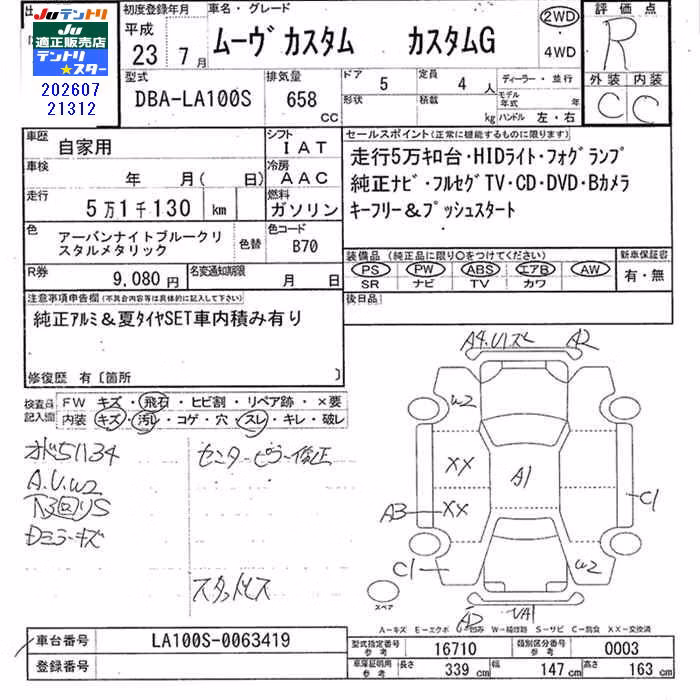 JUテントリ
JU適正販売店
テントリ
★スター
202607
21312
初度登録年月
平成
23年7月
車名・グレード
ムーヴ カスタム カスタムG
2WD
・
4WD
評価点
R
外装 内装
C C
型式
DBA-LA100S
排気量
658 CC
ドア 5
定員 4人
形状
積載 kg
ディーラー・並行
モデル年式 年
ハンドル 左・右
車歴 自家用
シフト IAT
車検 年 月( 日)
冷房 AAC
走行 5万1千130 km
燃料 ガソリン
色 アーバンナイトブルークリスタルメタリック
色替
色コード B70
R券 9,080円
名変通知期限 月 日
セールスポイント(正常に機能するものに限ります)
走行5万キロ台・HIDライト・フォグランプ
純正ナビ・フルセグTV・CD・DVD・Bカメラ
キーフリー&プッシュスタート
装備品(純正品に限り○をつけてください)
PS PW ABS エアB AW
SR ナビ TV カワ
新車保証書
有・無
後日品
注意事項申告欄(不具合内容等は具体的に記入して下さい)
純正アルミ&夏タイヤSET車内積み有り
修復歴 有〔箇所 〕
検査員記入欄
FW キズ・飛石・ヒビ割・リペア跡・×要
内装 キズ・汚れ・コゲ・穴・スレ・キレ・破レ
51134
A.U.W2
下3回りS
Dミラーキズ
センターピラー修正
スタッドレス
A4.U1
A2
W2
XX
XX
A1
A3
C1
C1
W2
A2
スペア
A-キズ E-エクボ U-凹み W-補修跡 S-サビ C-腐食 XX-交換済
車台番号 LA100S-0063419
登録番号
型式指定番号 参考 16710
類別区分番号 参考 0003
車庫証明用 参考
長さ 339 cm
幅 147 cm
高さ 163 cm